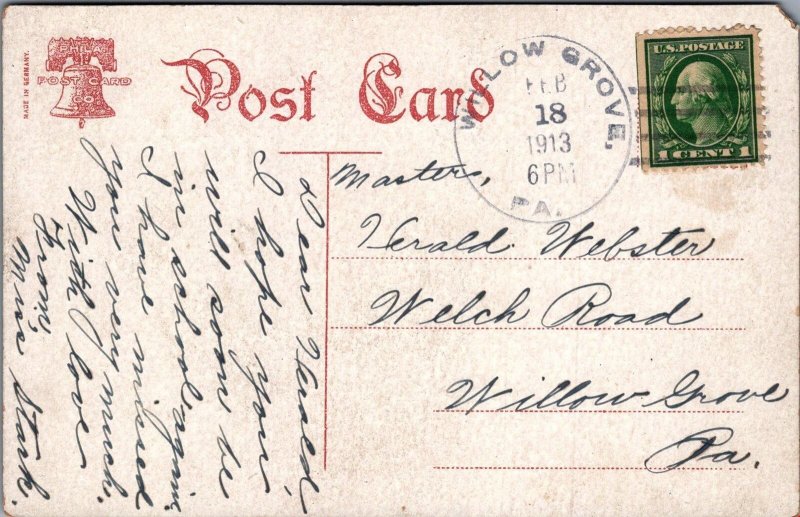 PHILA
POST CARD
CO
MADE IN GERMANY.
Post Card
WILLOW GROVE,
FEB
18
1913
6PM
PA.
U.S. POSTAGE
1 CENT 1
Master,
Herald Webster
Welch Road
Willow Grove
Pa.
Dear Herald,
I hope you
will soon be
in school again.
I have missed
you very much.
With love
From,
Miss Stark.